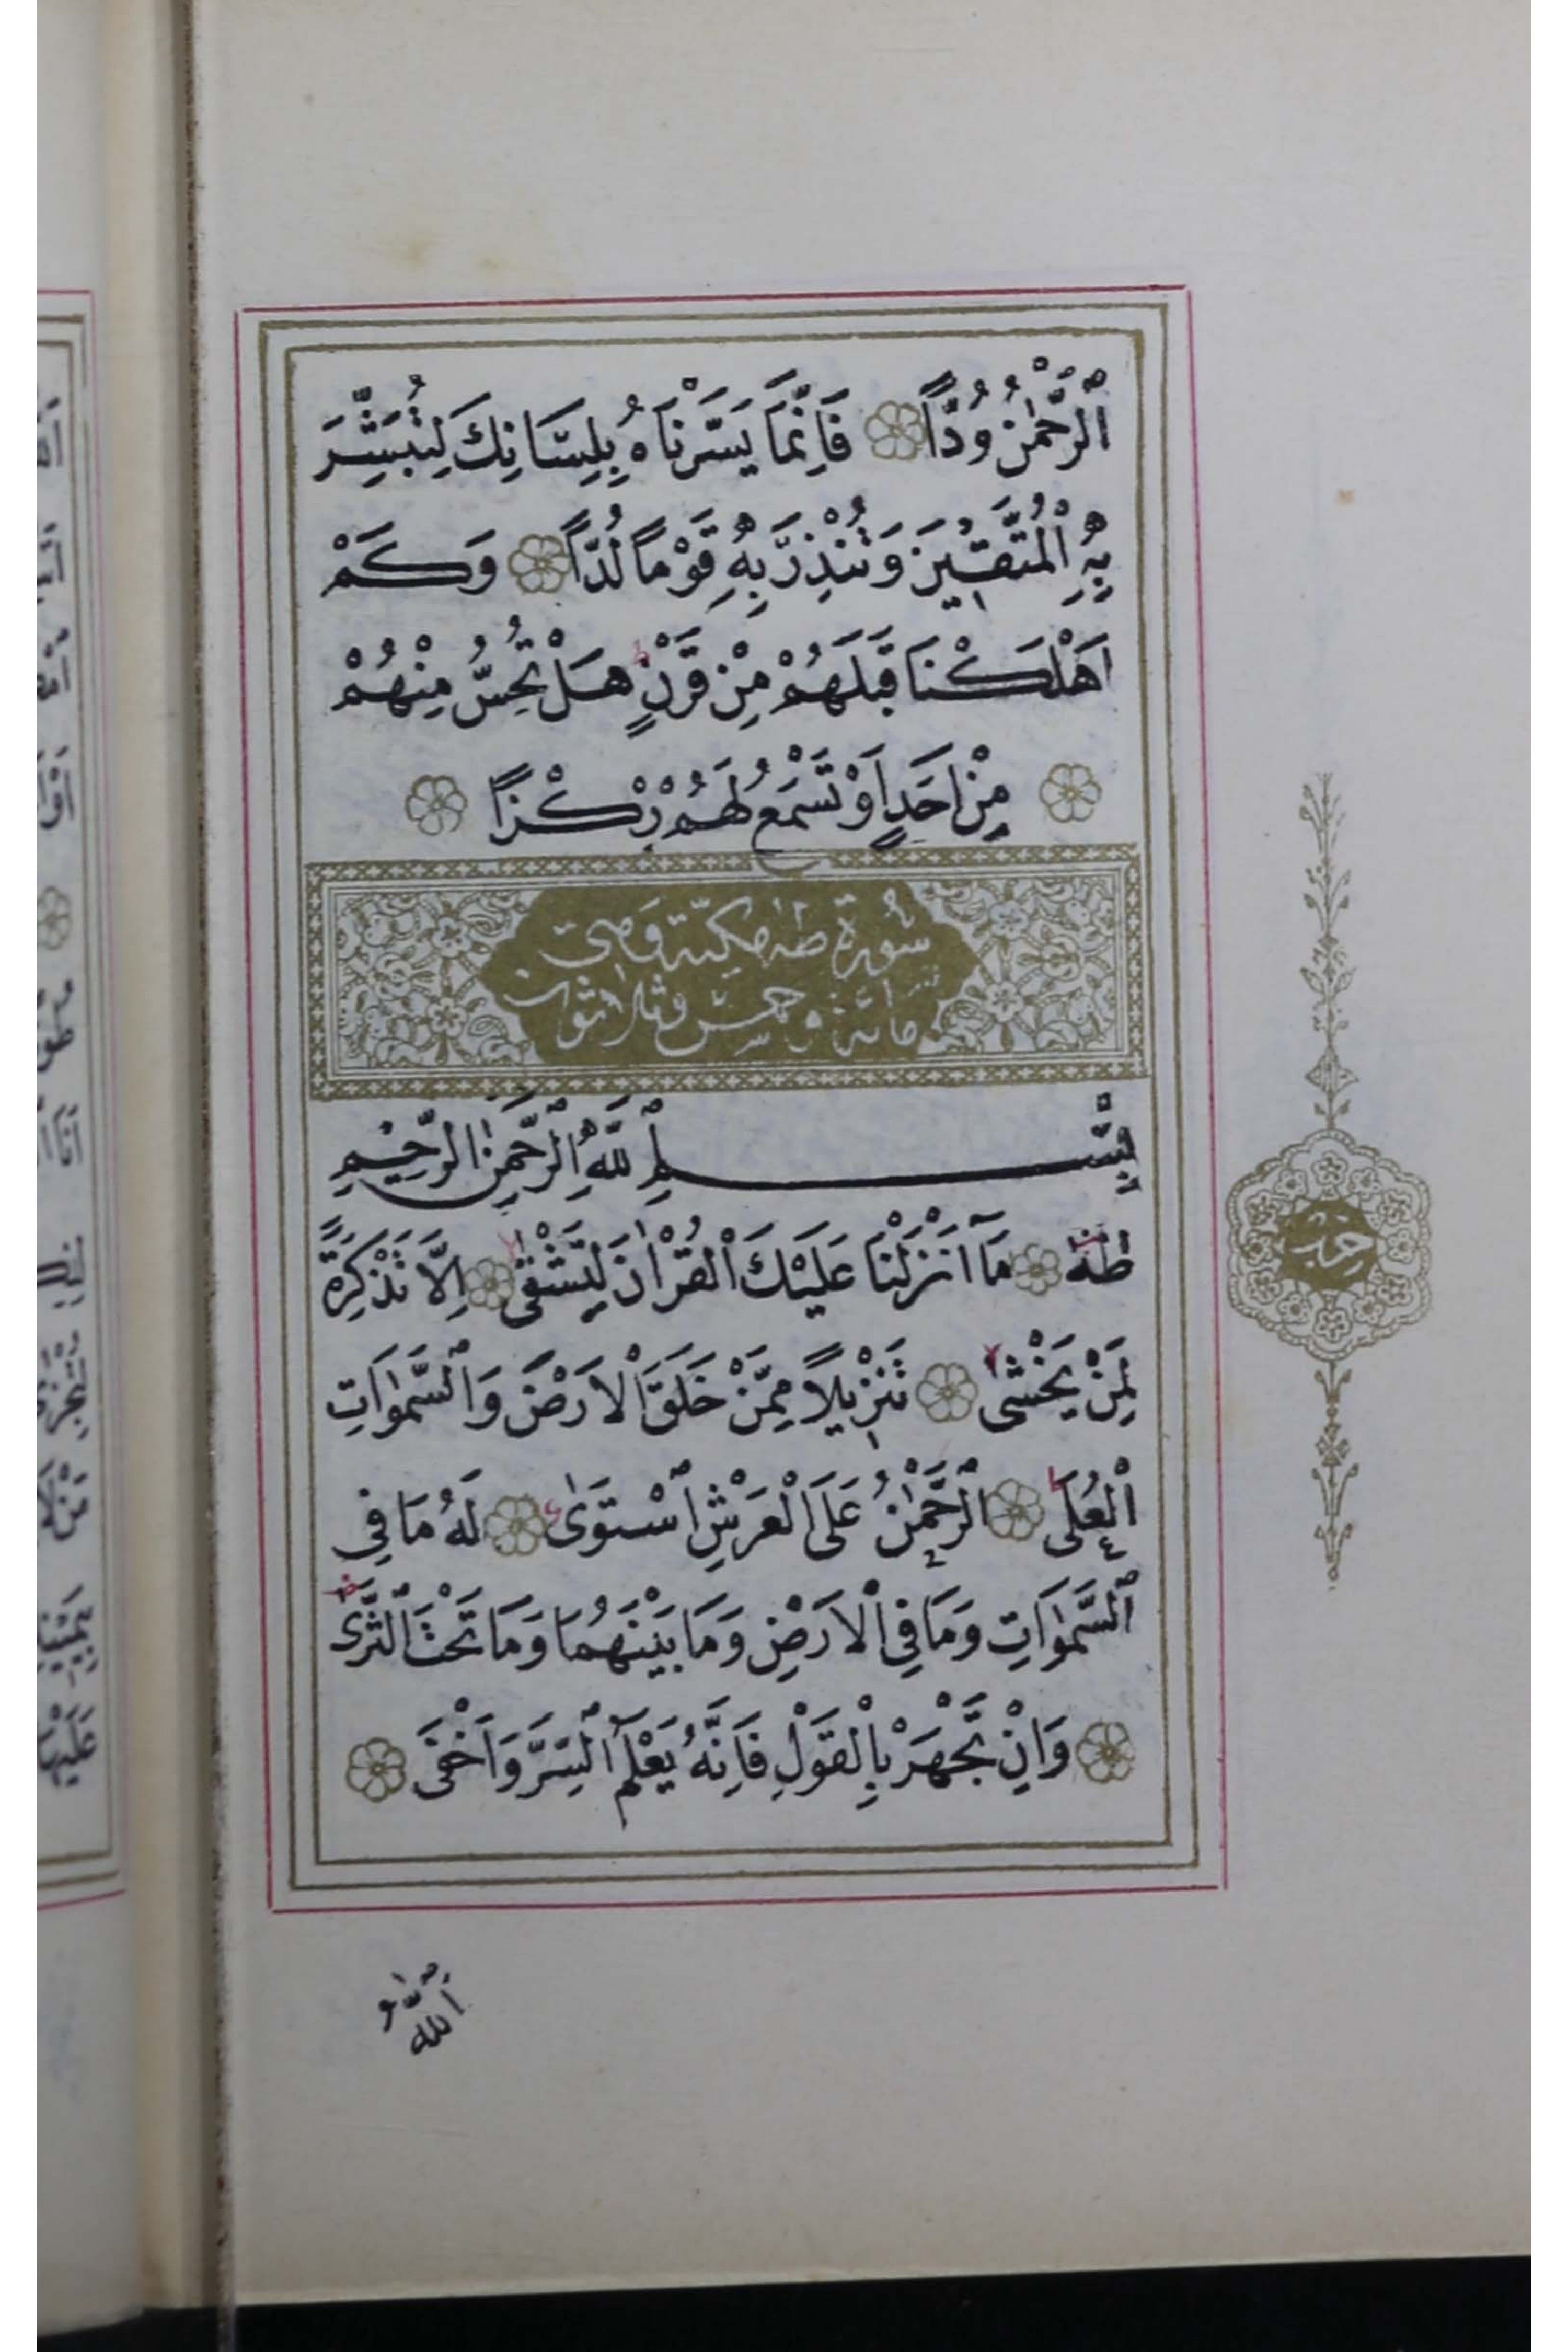 اَلرَّحْمٰنُ وُدًّا فَاِنَّمَا يَسَّرْنَاهُ بِلِسَانِكَ لِتُبَشِّرَ
بِهِ الْمُتَّقٖينَ وَتُنْذِرَ بِهٖ قَوْمًا لُدًّا وَكَمْ
اَهْلَكْنَا قَبْلَهُمْ مِنْ قَرْنٍ هَلْ تُحِسُّ مِنْهُمْ
مِنْ اَحَدٍ اَوْ تَسْمَعُ لَهُمْ رِكْزًا
سورة طه مكية وهي
مائة وخمس وثلاثون
بِسْمِ اللّٰهِ الرَّحْمٰنِ الرَّحٖيمِ
طٰهٰ مَآ اَنْزَلْنَا عَلَيْكَ الْقُرْاٰنَ لِتَشْقٰى اِلَّا تَذْكِرَةً
لِمَنْ يَخْشٰى تَنْزٖيلًا مِمَّنْ خَلَقَ الْاَرْضَ وَالسَّمٰوَاتِ
الْعُلٰى اَلرَّحْمٰنُ عَلَى الْعَرْشِ اسْتَوٰى لَهُ مَا فِي
السَّمٰوَاتِ وَمَا فِي الْاَرْضِ وَمَا بَيْنَهُمَا وَمَا تَحْتَ الثَّرٰى
وَاِنْ تَجْهَرْ بِالْقَوْلِ فَاِنَّهُ يَعْلَمُ السِّرَّ وَاَخْفٰى
حزب
اَللّٰهُ